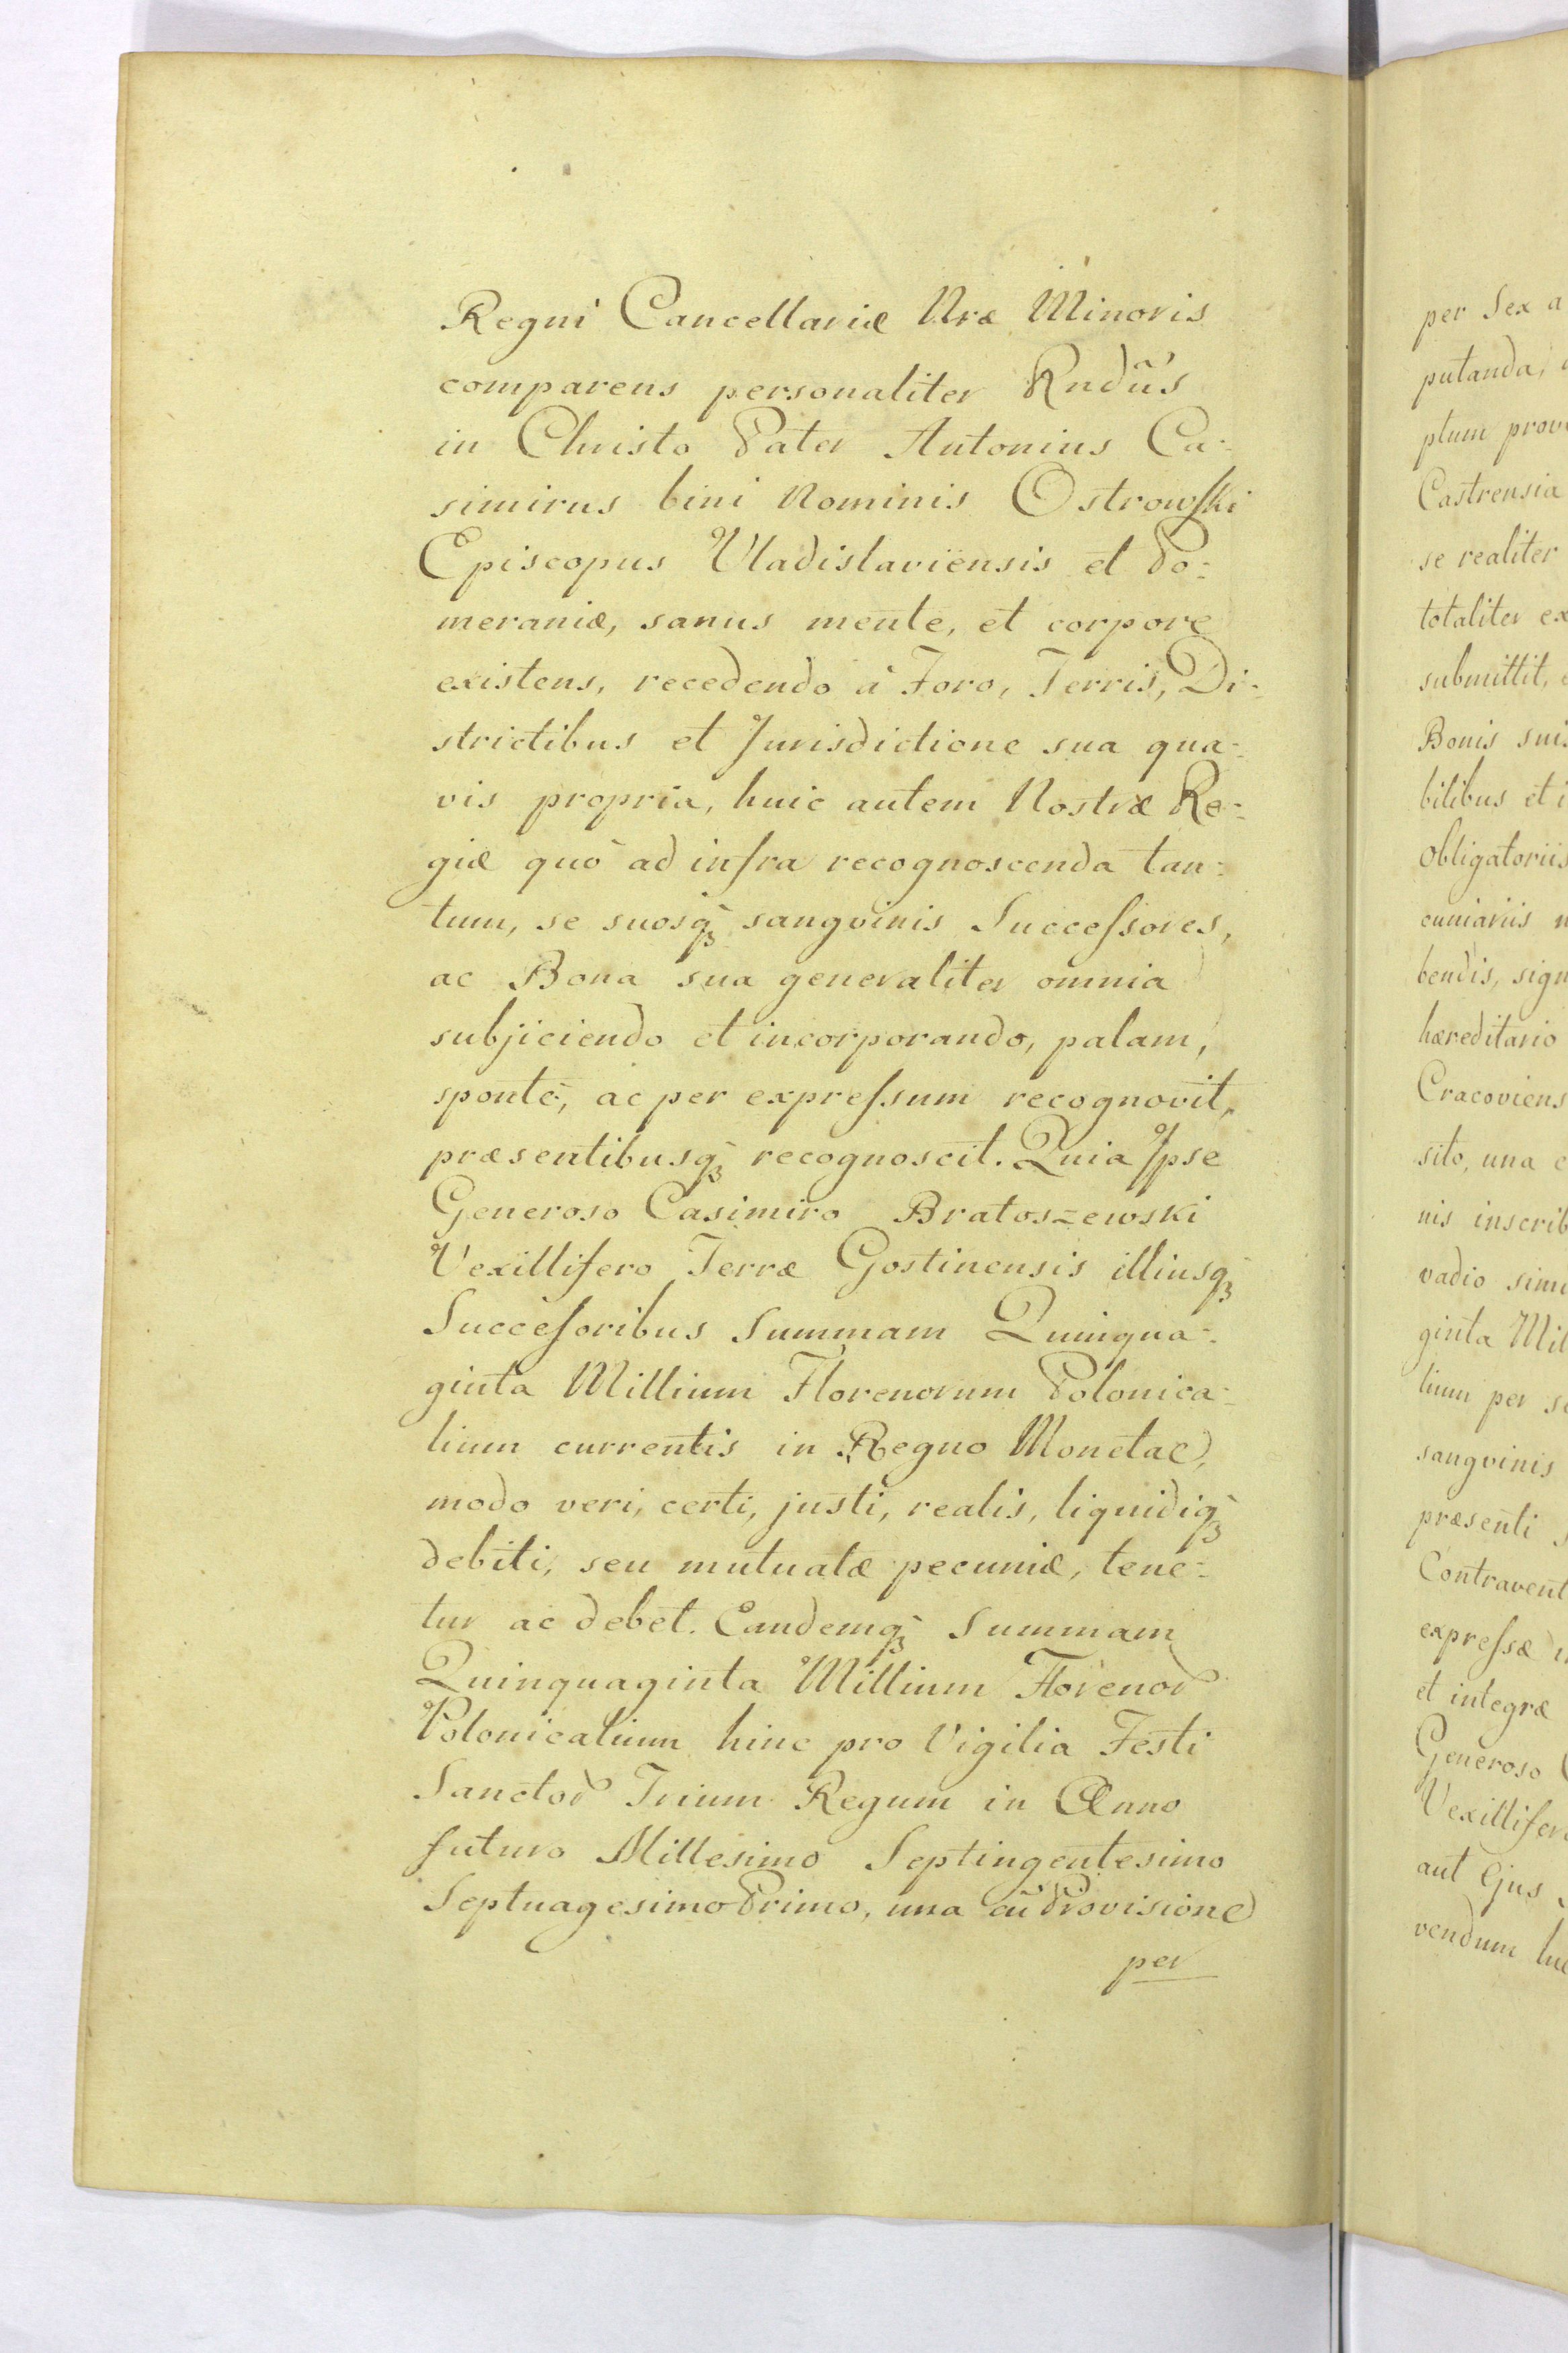 Regni Cancellariæ Nræ Minoris
comparens personaliter Rndũs
in Christo Pater Antonius Ca-
simirus bini Nominis Ostrowski
Episcopus Vladislaviensis et Po-
meraniæ, sanus mente, et corpore
existens, recedendo à Foro, Terris, Di-
strictibus et Jurisdictione sua qua-
vis propria, huic autem Nostræ Re-
giæ quò ad infra recognoscenda tan-
tum, se suosq3 sangvinis Successores,
ac Bona sua generaliter omnia
subjiciendo et incorporando, palam,
sponte, ac per expressum recognovit,
præsentibusq3 recognoscit. Quia Ipse
Generoso Casimiro Bratoszewski
Vexillifero Terræ Gostinensis illiusq3
Successoribus Summam Quinqua-
ginta Millium Florenorum Polonica-
lium currentis in Regno Monetae,
modo veri, certi, justi, realis, liquidiq3
debiti, seu mutuatæ pecuniæ, tene-
tur ac debet. Eandemq3 Summam
Quinquaginta Millium Florenor
Polonicalium hinc pro Vigilia Festi
Sanctor Trium Regum in Anno
futuro Millesimo Septingentesimo
Septuagesimo Primo, una cũ Provisione
per
per Sex a
putanda,
plum prov
Castrensia
se realiter
totaliter ex
submittit,
Bonis suis
bilibus et i
obligatoriis
cuniariis n
bendis, sign
hæreditario
Cracoviens
sito, una c
nis inscrib
vadio simi
ginta Mil
lium per s
sangvinis
præsenti
Contravent
expressæ
et integræ
Generoso
Vexillifero
aut Ejus
vendum lu